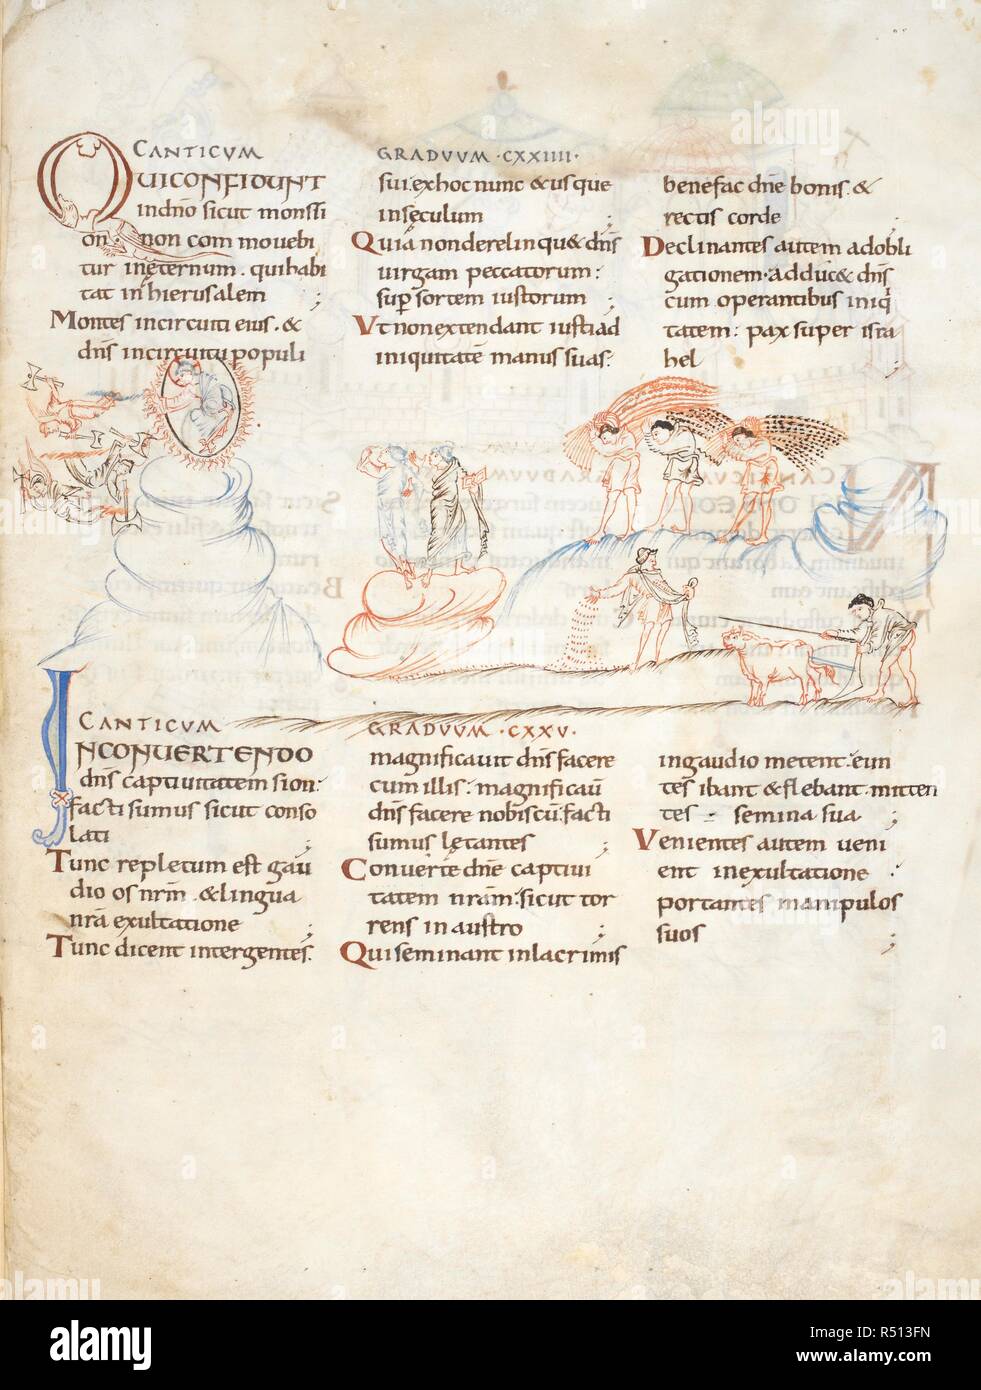 CANTICUM
QUI CONFIDUNT
indño sicut monsſi
on · non com mouebi
tur inęternum . qui habi
tat in hierusalem ;
Montes incircuitu eius . &
dñs incircuitu populi
GRADUUM · CXXIIII ·
sui . exhoc nunc & usque
insęculum ;
Quia non derelinqu& dñs
uirgam peccatorum :
sup sortem iustorum ;
Vt non extendant iustiad
iniquitatē manus suas .
benefac dñe bonis . &
rectis corde ;
Declinantes autem adobli
gationem · adduc& dñs
cum operantibus iniq
tatem : pax super isra
hel ;
CANTICUM
IN CONUERTENDO
dñs captiuitatem sion :
facti sumus sicut conso
lati ;
Tunc repletum est gau
dio os nrm̄ . & lingua
nrā exultatione ;
Tunc dicent intergentes .
GRADUUM · CXXV .
magnificauit dñs facere
cum illis : magnificaū
dñs facere nobiscū : facti
sumus lętantes ;
Conuerte dñe captiui
tatem nrām : sicut tor
rens in austro ;
Qui seminant inlacrimis
ingaudio metent : eun
tes ibant & flebant . mitten
tes semina sua ;
Venientes autem ueni
ent inexultatione ·
portantes manipulos
suos ;
alamy
Image ID: R513FN
www.alamy.com